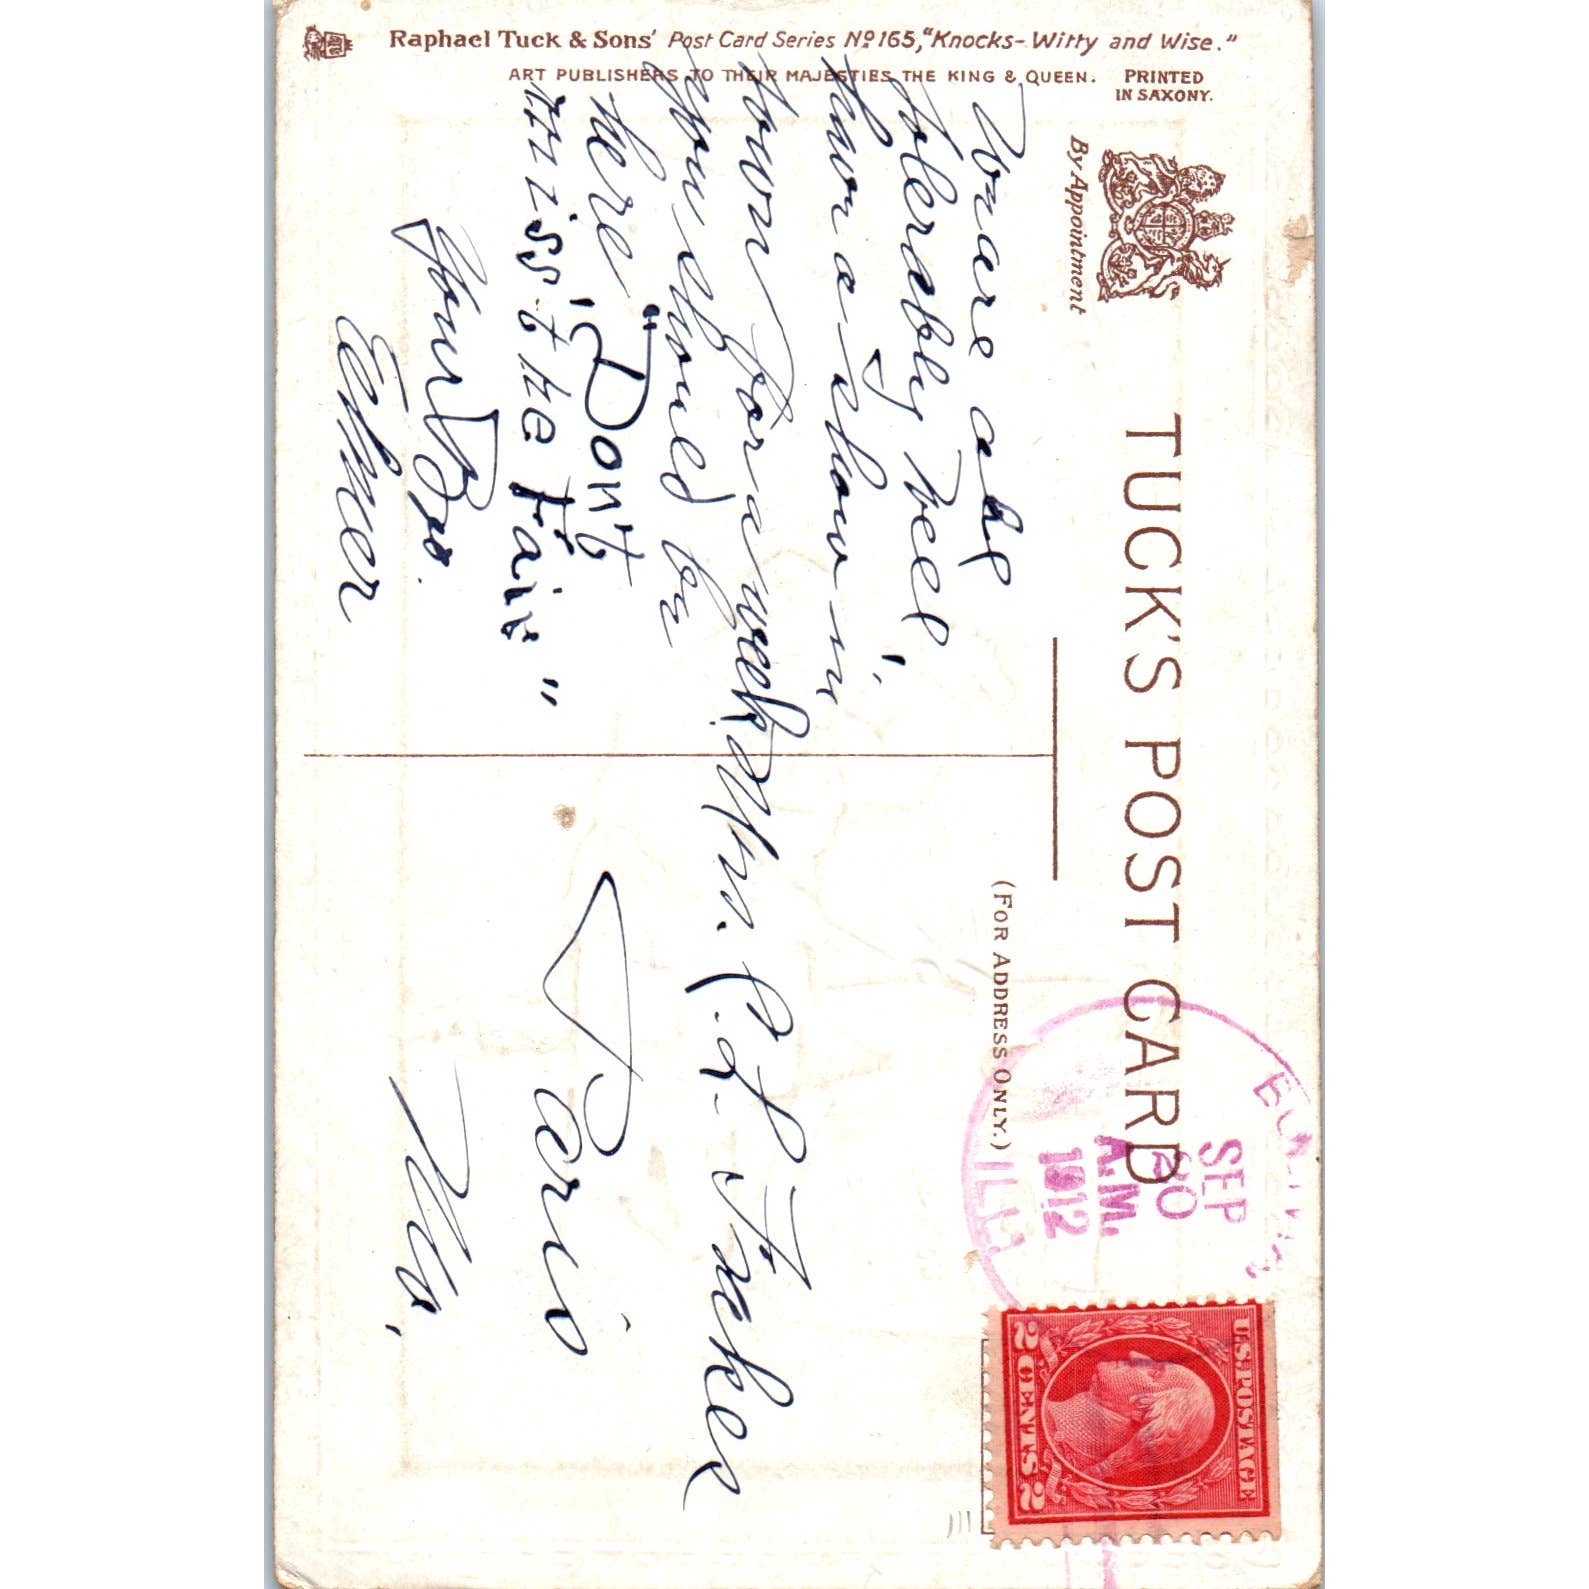 Raphael Tuck & Sons' Post Card Series No 165, "Knocks-Witty and Wise."
ART PUBLISHERS TO THEIR MAJESTIES THE KING & QUEEN. PRINTED
IN SAXONY.
By Appointment
TUCK'S POST CARD
(FOR ADDRESS ONLY.)
We are all
tolerably well,
have a show in
town for a week.
you should be
there "Don't
miss the Fair"
Your Bro.
Elmer
Mrs. C. L. Baker
Paris
Mo.
SEP
20
A.M.
1912
ILL.
U.S. POSTAGE
2 CENTS 2